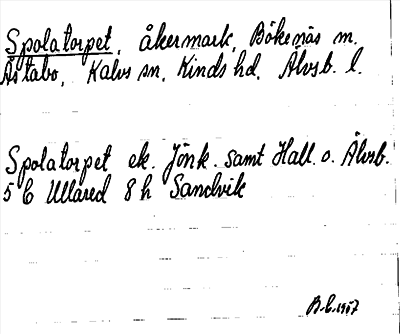 Spolatorpet, åkermark, Bökenäs m.
Årtabo, Kalvs sn, Kinds hd, Älvsb. l.
Spolatorpet ek. Jönk. samt Hall. o. Älvsb.
5 C Ullared 8 h Sandvik
B.L. 1957